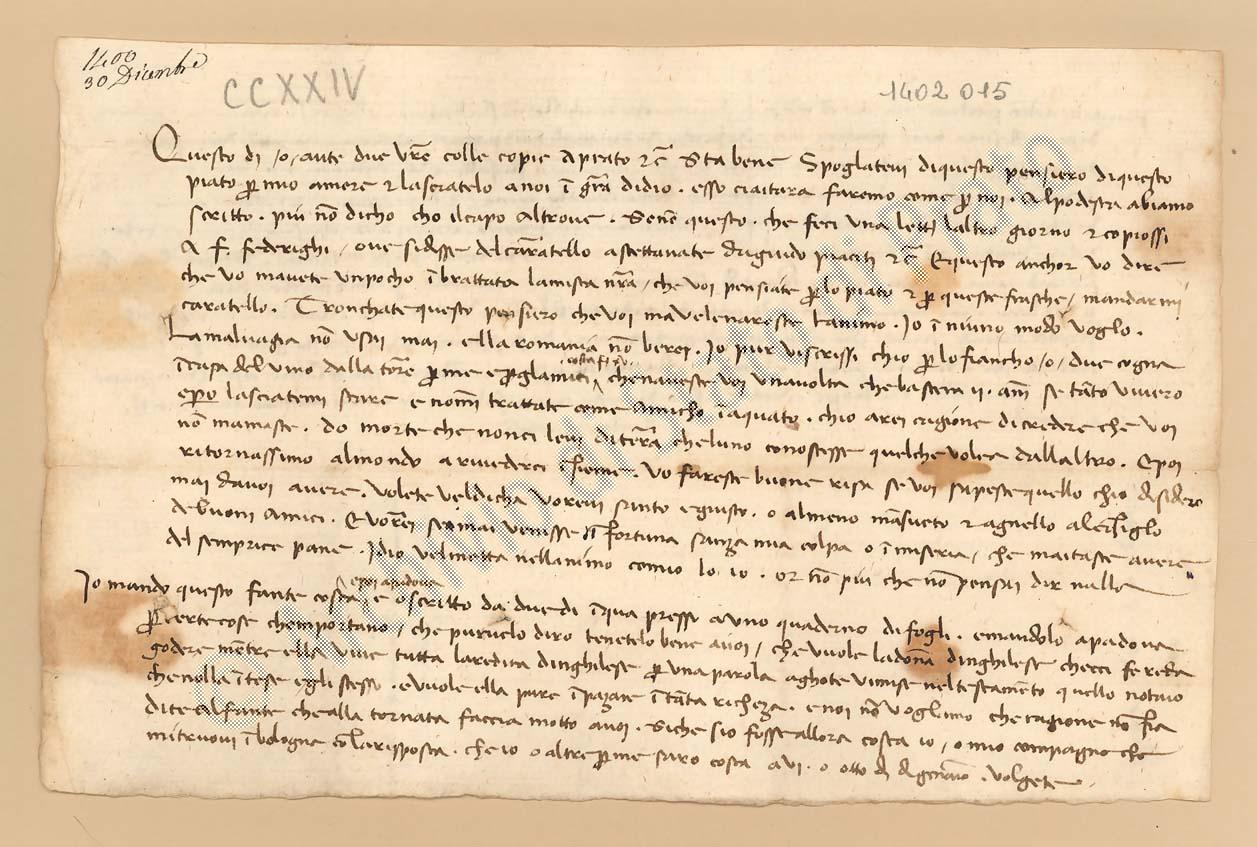 1400
30 Dicembre
CCXXIV
1402 015
Questo di /o/ aute due vre colle copie a prato etc sta bene Spoglatevi di questo pensiero di questo
piato per mio amore e lasciatelo a noi in gra di dio . esso ci aitara faremo come per noi . Al podesta abiamo
scritto . più non dicho cho il capo altrove . Senon questo . che feci una lettera laltro giorno e copiossi
A f. federighi / ove si disse del caratello aspettavate da guido piaciti etc E questo anchor vo dire
che vo mavete un pocho imbrattata lamista nra / che voi pensiate per lo piato e per queste frasche / mandarmi
caratello . Tronchate questo pensiero che voi mavelenareste lanimo . Io in niuno modo voglo .
La malvagia non usai mai . e lla romania non berei . Io pur vi scrissi chio per lo fiancho /o/ due cogna
in casa del vino dalla torre per me e per gl amici che naveste voi una volta che bastera ii . anni se tanto vivero
e pero lasciatemi stare e non mi trattate come amicho in aquato . chio arei cagione di credere che voi
non mamaste . Do morte che non ci levi di terra che luno conoscesse quelche volea dallaltro . E poi
ritornassimo al mondo a rivederci insieme . Vo fareste buone risa se voi sapeste quello chio disidero
mai da voi avere . volete vel dicha vorevi santo e giusto . o almeno mansueto e agnello a lersiglo
de buoni amici . E vorrei se mai venisse in fortuna sanza mia colpa o in miseria / che maitaste avere
del semprice pane . Idio vel metta nellanimo comio lo io . or non più che non pensai dir nulla
Io mando questo fante costa e poi a padova e o scritto da due di in qua presso a uno quaderno di fogli . e mandolo a padova
per certe cose chemportano / che pur velo diro tenetelo bene a voi / che vuole la donna dinghilese che cci fe reda
godere mentre ella vive tutta laredita dinghilese per una parola aghote vi mise nel testamento quello notaio
che nolla intese egli stesso . e vuole ella pure impazare in tanta richeza . e noi non voglimo che ragione non sia
dite al fante che alla tornata faccia motto a voi . siche sio fosse allora costa io / o mio compagno che
mi truovi in bologna con la risposta . che io o altre per me saro costa a vi . o otto di di gennaio . volgete